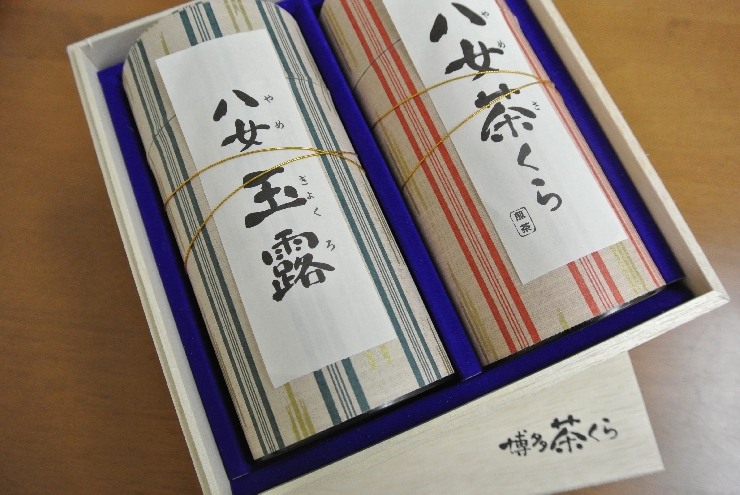 八女玉露
やめぎょくろ
八女茶くら
やめさ
煎茶
博多茶くら